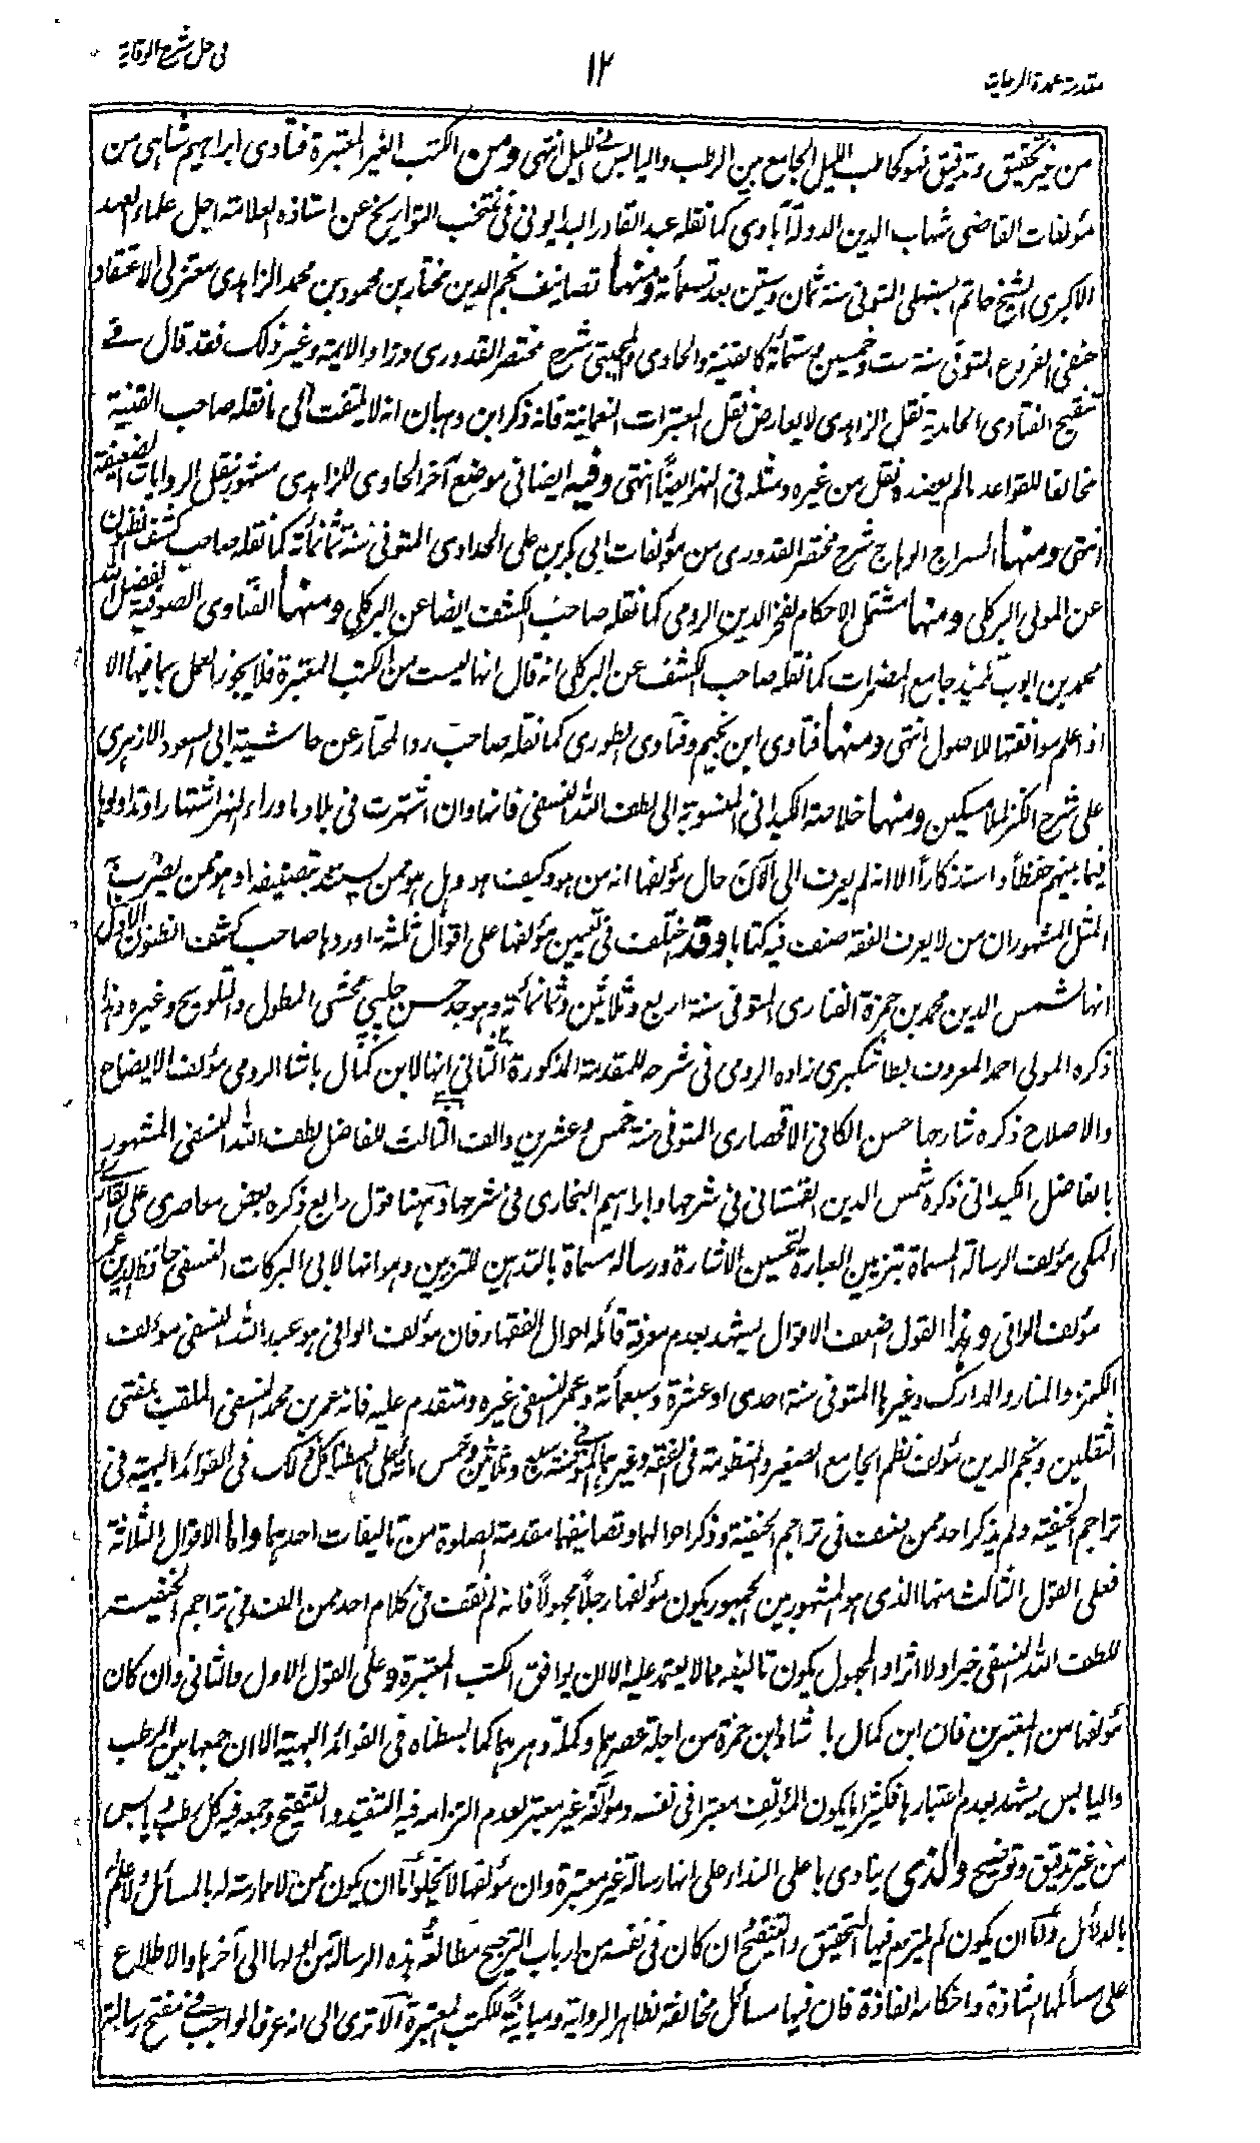 مقدمة عمدة الرعاية
١٢
فى حل شرح الوقاية
من غير تحقيق وتدقيق فهو كحاطب الليل الجامع بين الرطب واليابس فى الليل انتهى ومن الكتب الغير المعتبرة فتاوى ابراهيم شاهى من
مؤلفات القاضى شهاب الدين الدولة آبادى كما نقله عبد القادر البدايونى فى منتخب التواريخ عن استاذه العلامة اجل علماء العهد
الاكبرى الشيخ حاتم السنبهلى المتوفى سنة ثمان وستين بعد تسعمائة ومنها تصانيف نجم الدين مختار بن محمود بن محمد الزاهدى معتزلى الاعتقاد
حنفى الفروع المتوفى سنة ست وخمسين وستمائة كالقنية والحاوى والمجتبى شرح مختصر القدورى وزاد الائمة وغير ذلك فقد قال فى
تنقيح الفتاوى الحامدية نقل الزاهدى لا يعارض نقل المعتبرات النعمانية فانه ذكر ابن وهبان انه لا يلتفت الى ما نقله صاحب القنية
مخالفا للقواعد ما لم يعضده نقل من غيره ومثله فى النهر ايضا انتهى وفيه ايضا فى موضع آخر الحاوى للزاهدى مشهور بنقل الروايات الضعيفة
انتهى ومنها السراج الوهاج شرح مختصر القدورى من مؤلفات ابى بكر بن على الحدادى المتوفى سنة ثمانمائة كما نقله صاحب كشف الظنون
عن المولى البركلى ومنها مشتمل الاحكام لفخر الدين الرومى كما نقله صاحب الكشف ايضا عن البركلى ومنها الفتاوى الصوفية لفضل الله
محمد بن ايوب تلميذ جامع المضمرات كما نقله صاحب الكشف عن البركلى انه قال انها ليست من الكتب المعتبرة فلا يجوز العمل بما فيها الا
اذا علم موافقتها للاصول انتهى ومنها فتاوى ابن نجيم وفتاوى الطورى كما نقله صاحب رد المحتار عن حاشية ابى السعود الازهرى
على شرح الكنز لملا مسكين ومنها خلاصة الكيدانى المنسوبة الى لطف الله النسفى فانها وان اشتهرت فى بلاد ما وراء النهر اشتهارا وتداولوها
فيما بينهم حفظاً واستذكاراً الا انه لم يعرف الى الآن حال مؤلفها انه من هو وكيف هو وهل هو ممن يستند بتصنيفه او هو ممن يضرب به
المثل المشهور ان من لا يعرف الفقه صنف فيه كتابا وقد اختلف فى تعيين مؤلفها على اقوال ثلثة اوردها صاحب كشف الظنون الاول
انها لشمس الدين محمد بن حمزة الفنارى المتوفى سنة اربع وثلاثين وثمانمائة وهو جد حسن چلپى محشى المطول والتلويح وغيره وهذا
ذكره المولى احمد المعروف بطاشكبرى زاده الرومى فى شرحه للمقدمة المذكورة الثانى انها لابن كمال باشا الرومى مؤلف الايضاح
والاصلاح ذكره شارحها حسن الكافى الاقحصارى المتوفى سنة خمس وعشرين والف الثالث للفاضل لطف الله النسفى المشهور
بالفاضل الكيدانى ذكره شمس الدين القهستانى فى شرحها وابراهيم البخارى فى شرحها وههنا قول رابع ذكره بعض معاصرى على القارى
المكى مؤلف الرسالة المسماة بتزيين العبارة لتحسين الاشارة ورسالة مسماة بالتدهين للتزيين وهو انها لابى البركات النسفى حافظ الدين عمر
مؤلف الوافى وهذا القول اضعف الاقوال يشهد بعدم معرفة قائله احوال الفقهاء فان مؤلف الوافى هو عبد الله النسفى مؤلف
الكنز والمنار والمدارك وغيرها المتوفى سنة احدى او عشرة وسبعمائة وعمر النسفى غيره ومتقدم عليه فانه عمر بن محمد النسفى الملقب بمفتى
الثقلين ونجم الدين مؤلف نظم الجامع الصغير والمنظومة فى الفقه وغيرهما المتوفى سنة سبع وثلاثين وخمس مائة على ما بسطنا كل ذلك فى الفوائد البهية فى
تراجم الحنفية ولم يذكر احد ممن صنف فى تراجم الحنفية وذكر احوالهما وتصانيفهما مقدمة الصلوة من تاليفات احدهما واما الاقوال الثلاثة
فعلى القول الثالث منها الذى هو المشهور بين الجمهور يكون مؤلفها رجلاً مجهولاً فانه لم نقف فى كلام احد ممن الف فى تراجم الحنفية
للطف الله النسفى خبرا ولا اثرا والمجهول يكون تاليفه مما لا يعتمد عليه الا ان يوافق الكتب المعتبرة وعلى القول الاول والثانى وان كان
مؤلفها من المعتبرين فان ابن كمال باشا وابن حمزة من اجلة عصرهما وكملة دهرهما كما بسطناه فى الفوائد البهية الا ان جمعها بين الرطب
واليابس يشهد بعدم اعتبارها فكثيرا ما يكون المؤلِّف معتبرا فى نفسه ومؤلَّفه غير معتبر لعدم التزامه فيه التنقيد والتنقيح وجمعه فيه كل رطب ويابس
من غير تدقيق وتوضيح والذى ينادى باعلى النداء على انها رسالة غير معتبرة وان مؤلفها لا يخلو اما ان يكون ممن لا ممارسة له بالمسائل ولا علم
بالدلائل واما ان يكون لم يلتزم فيها التحقيق والتنقيح وان كان فى نفسه من ارباب الترجيح مطالعة هذه الرسالة من اولها الى آخرها والاطلاع
على مسائلها الشاذة واحكامه الفاذة فان فيها مسائل مخالفة لظاهر الرواية ومباينة للكتب المعتبرة الا ترى الى انه عرف الواجب فى مفتتح رسالته